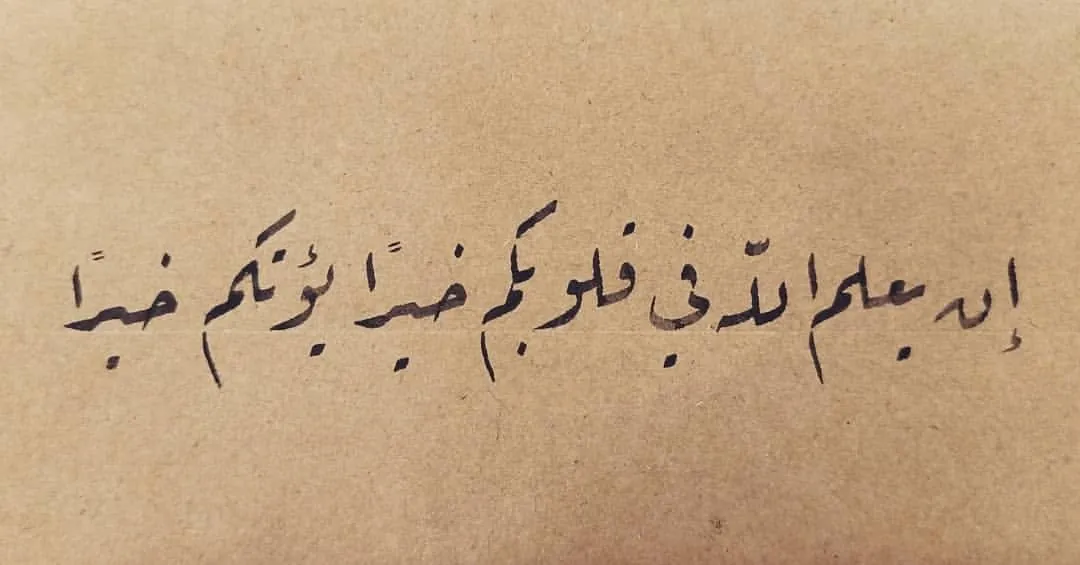 إن يعلم الله في قلوبكم خيرًا يؤتكم خيرًا